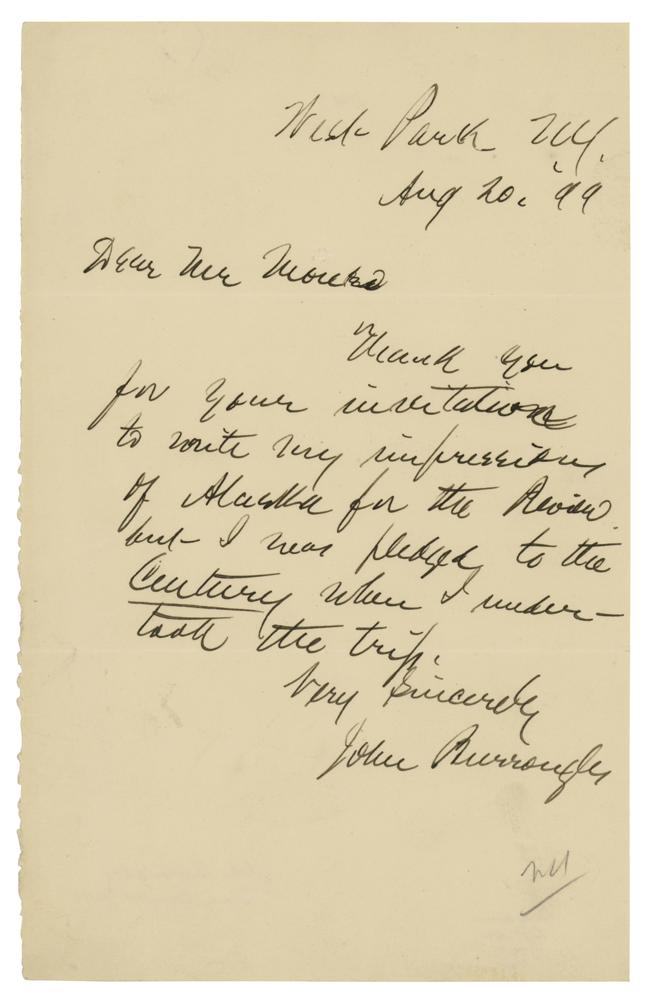 West Park N.Y.
Aug 20, '99
Dear Mr
Thank you
for your invitation
to write my impressions
of Alaska for the Review.
but I was pledged to the
Century when I under-
took the trip.
Very Sincerely
John Burroughs